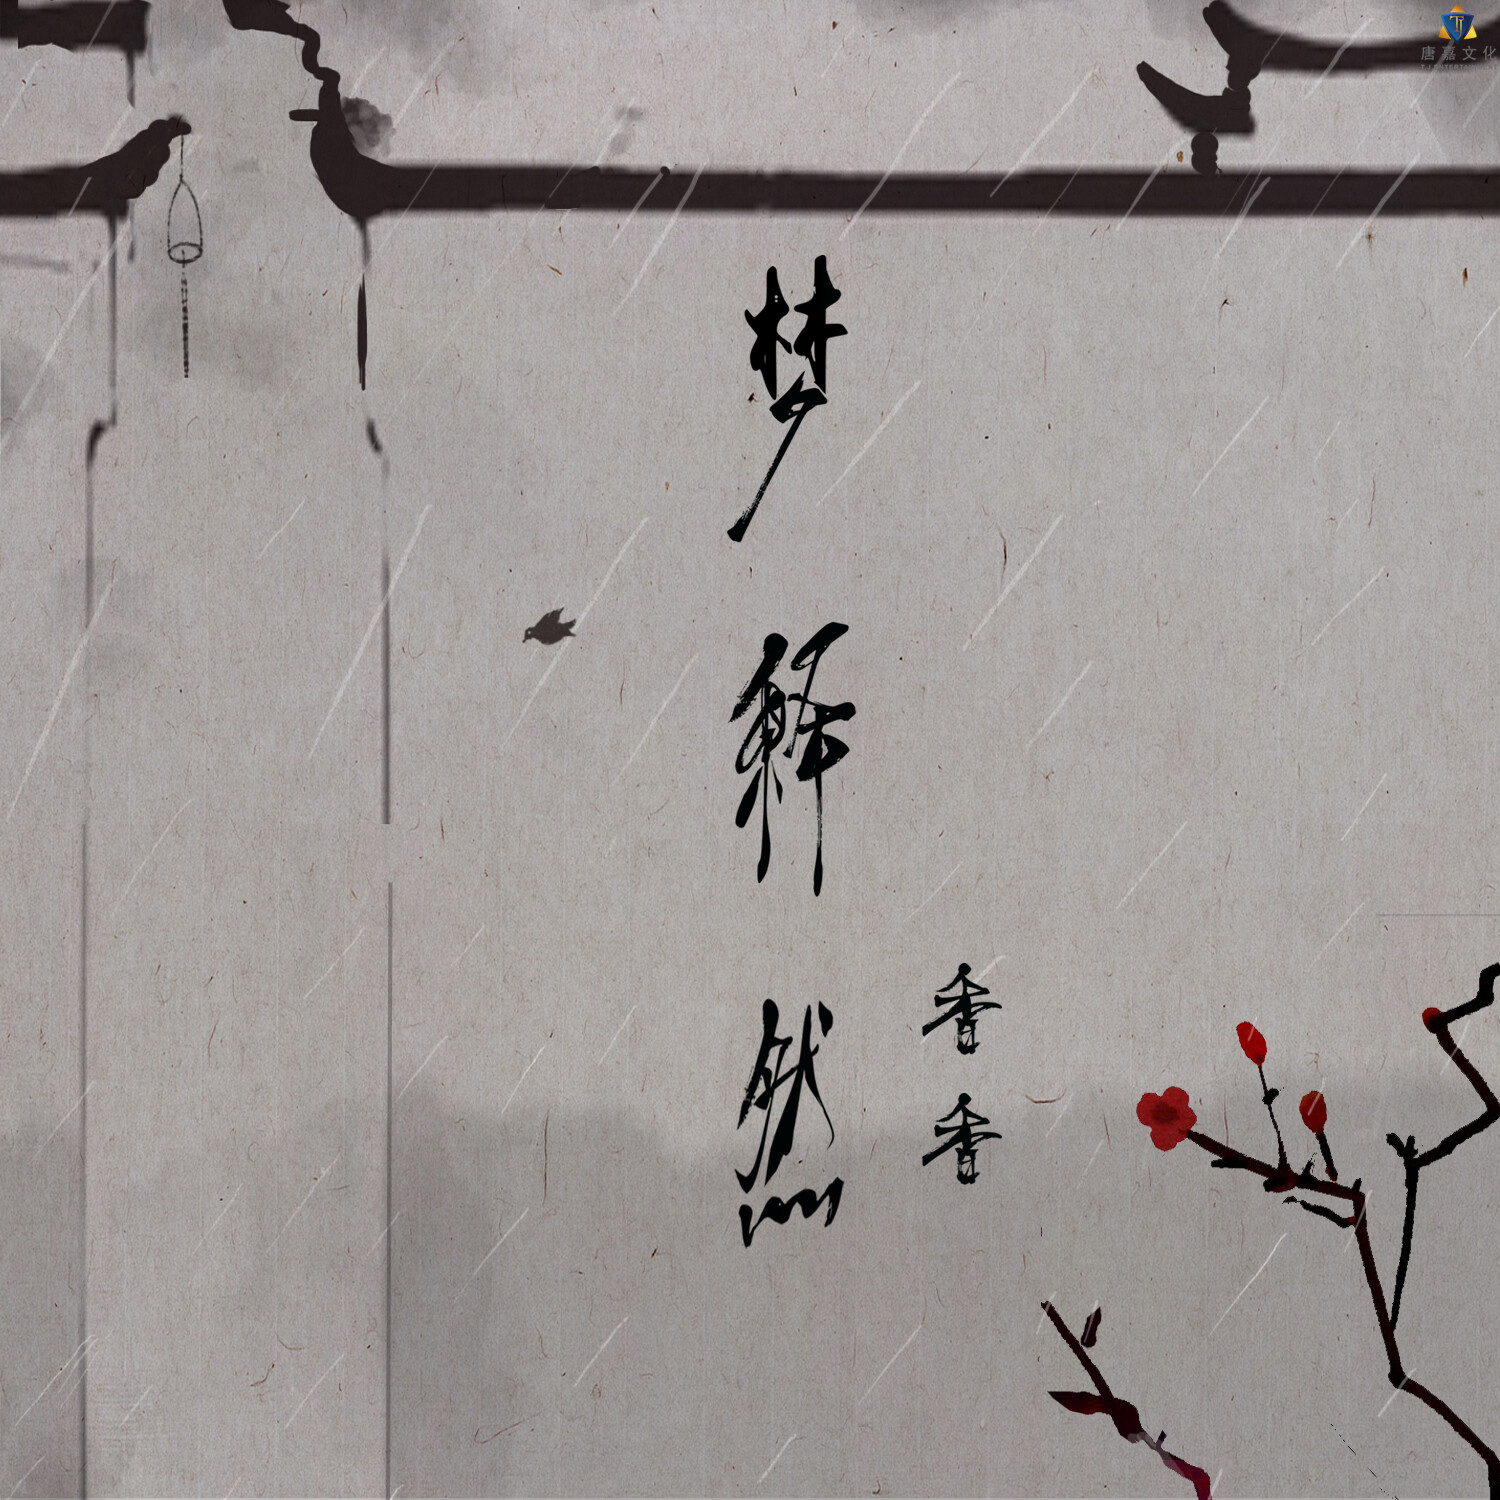 梦解然
香香
唐嘉文化